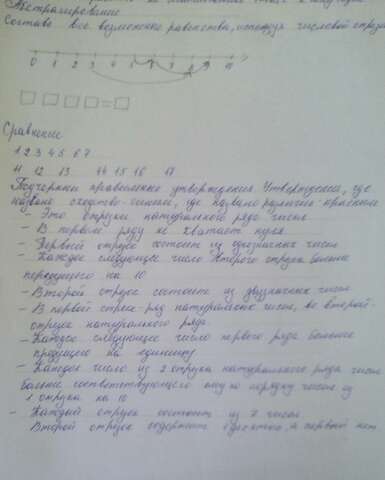 Абстрагирование
Составь все возможные равенства, используя числовой отрезок
1 2 3 4 5 6 7 8 9 10
□ □ □ □ = □
Сравнение
1 2 3 4 5 6 7
11 12 13 14 15 16 17
Подчеркни правильные утверждения. Утверждения, где
названо сходство - синим, где названо различие - красным
- Это отрезки натурального ряда чисел
- В первом ряду не хватает нуля
- Первый отрезок состоит из однозначных чисел
- Каждое следующее число второго отрезка больше
предыдущего на 10
- Второй отрезок состоит из двузначных чисел
- В первой строке - ряд натуральных чисел, во второй -
отрезок натурального ряда.
- Каждое следующее число первого ряда больше
предыдущего на единицу
- Каждое число из 2 отрезка натурального ряда чисел
больше соответствующего ему по порядку числа из
1 отрезка на 10
- Каждый отрезок состоит из 7 чисел
Второй отрезок содержит а первый нет.